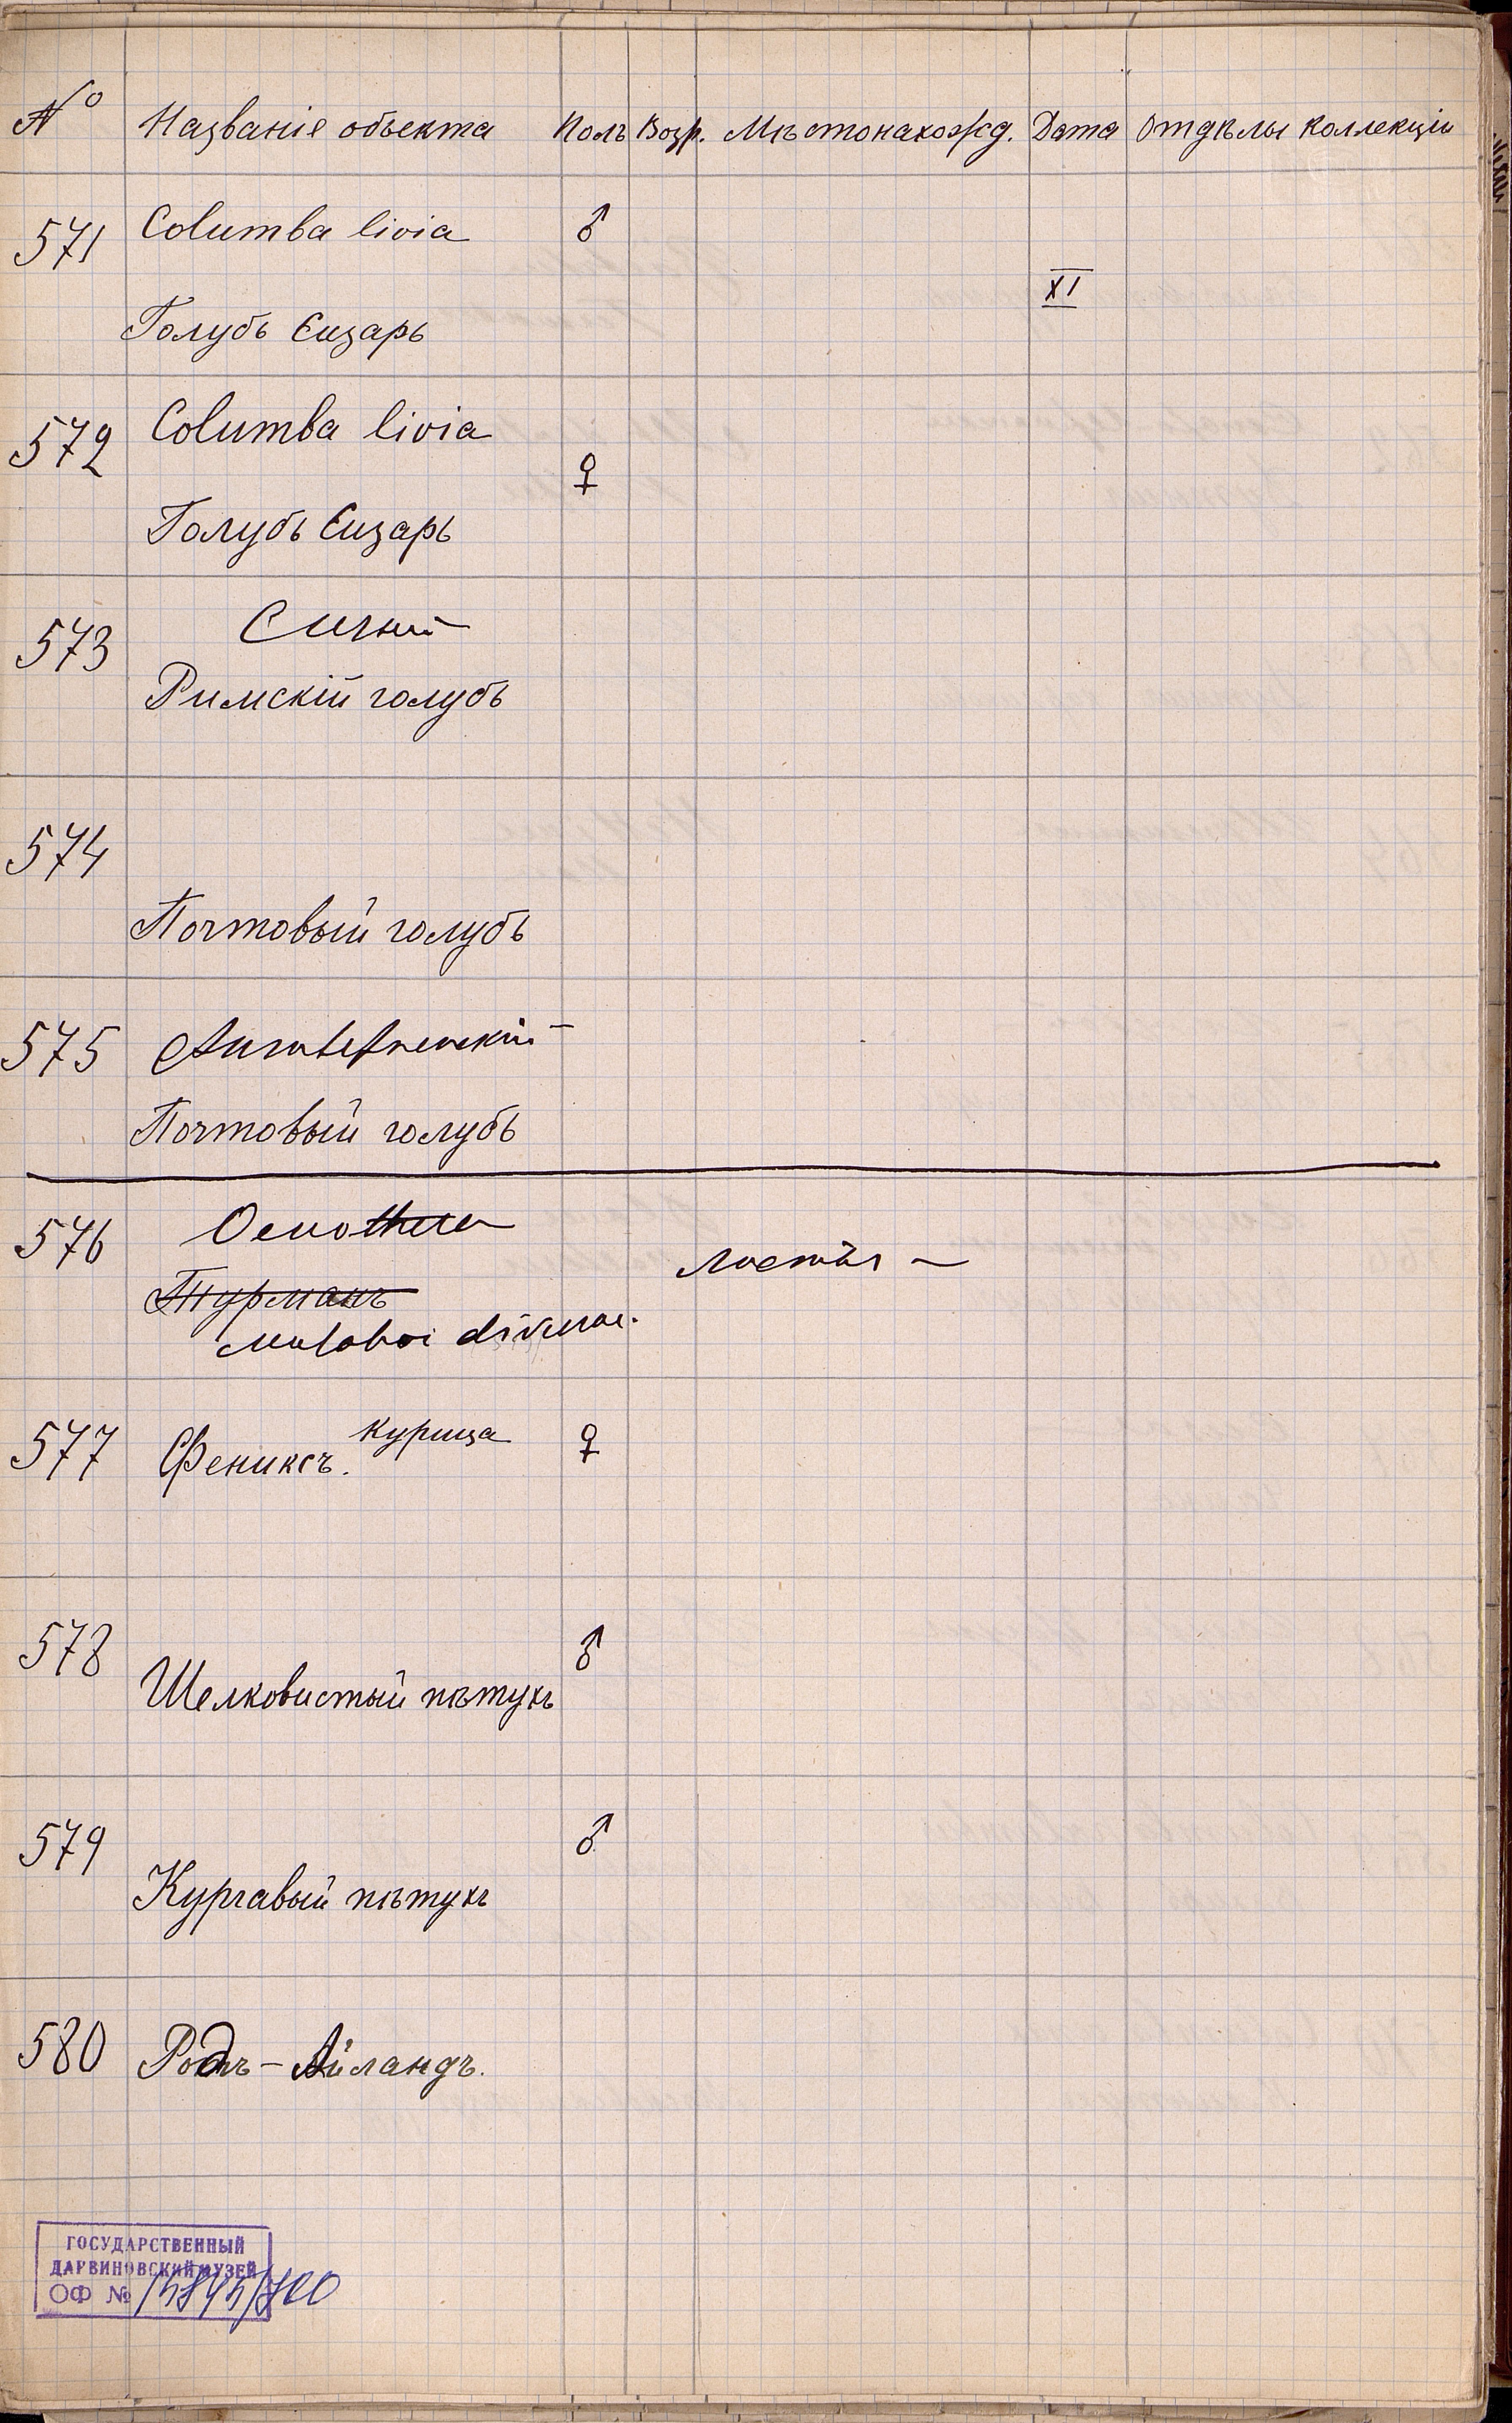 № Названіе объекта Полъ Возр. Мѣстонахожд. Дата Отдѣлы коллекціи
571 Columba livia ♂
XI
Голубь Сизарь
572 Columba livia
♀
Голубь Сизарь
573 Синій
Римскій голубь
574
Почтовый голубь
575 Антверпенскій
Почтовый голубь
576 Oenothera
Турманъ
577 Фениксъ. курица ♀
578 ♂
Шелковистый пѣтухъ
579 ♂
Курчавый пѣтухъ
580 Родъ-Айландъ.
ГОСУДАРСТВЕННЫЙ
ДАРВИНОВСКИЙ МУЗЕЙ
ОФ №